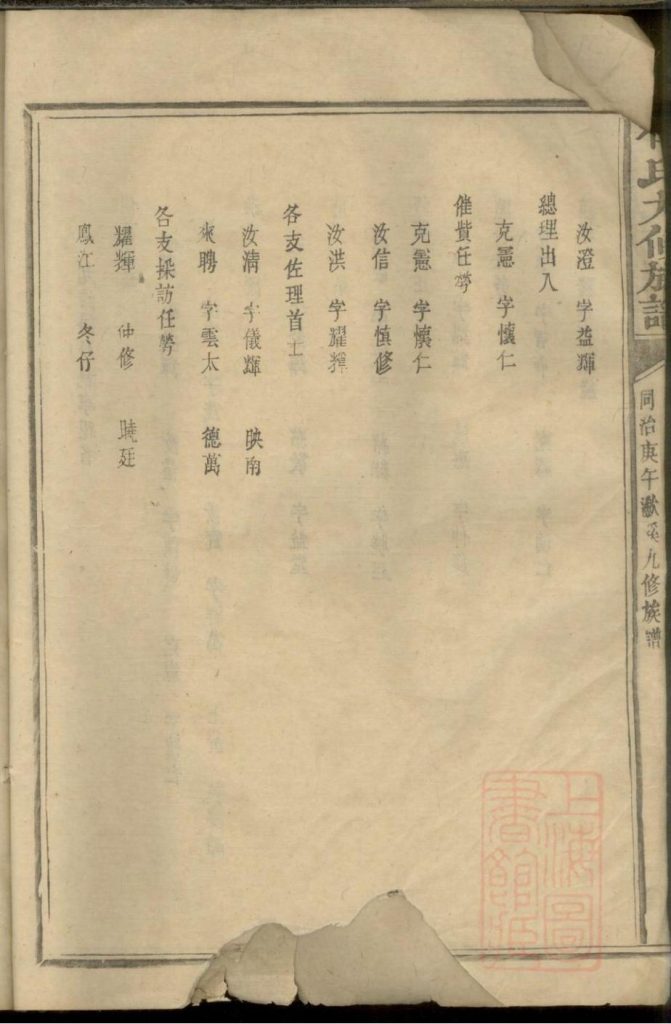 氏九修族譜
同治庚午漱溪九修族譜
汝澄 字益輝
總理出入
克憲 字懷仁
催貲任勞
克憲 字懷仁
汝信 字慎修
汝洪 字耀輝
各支佐理首士
汝清 字儀輝 映南
來聘 字雲太 德萬
各支採訪任勞
耀輝 仲修 曉廷
鳳江 冬仔
上海圖書館藏